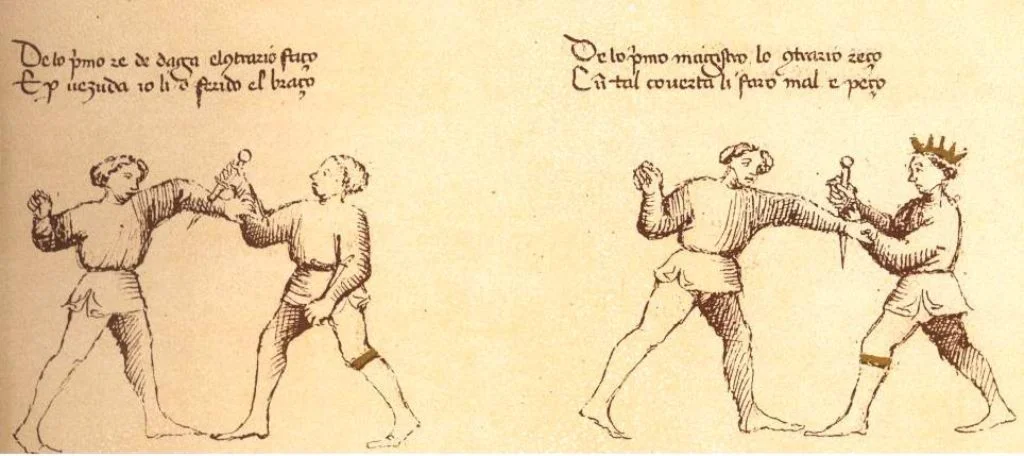 De lo p̃mo re de daga el ꝯtrario faço
E ꝑ uezuda io li o ferido el braço
De lo p̃mo magistro lo ꝯtrario reço
Cũ tal couerta li faro mal e peço